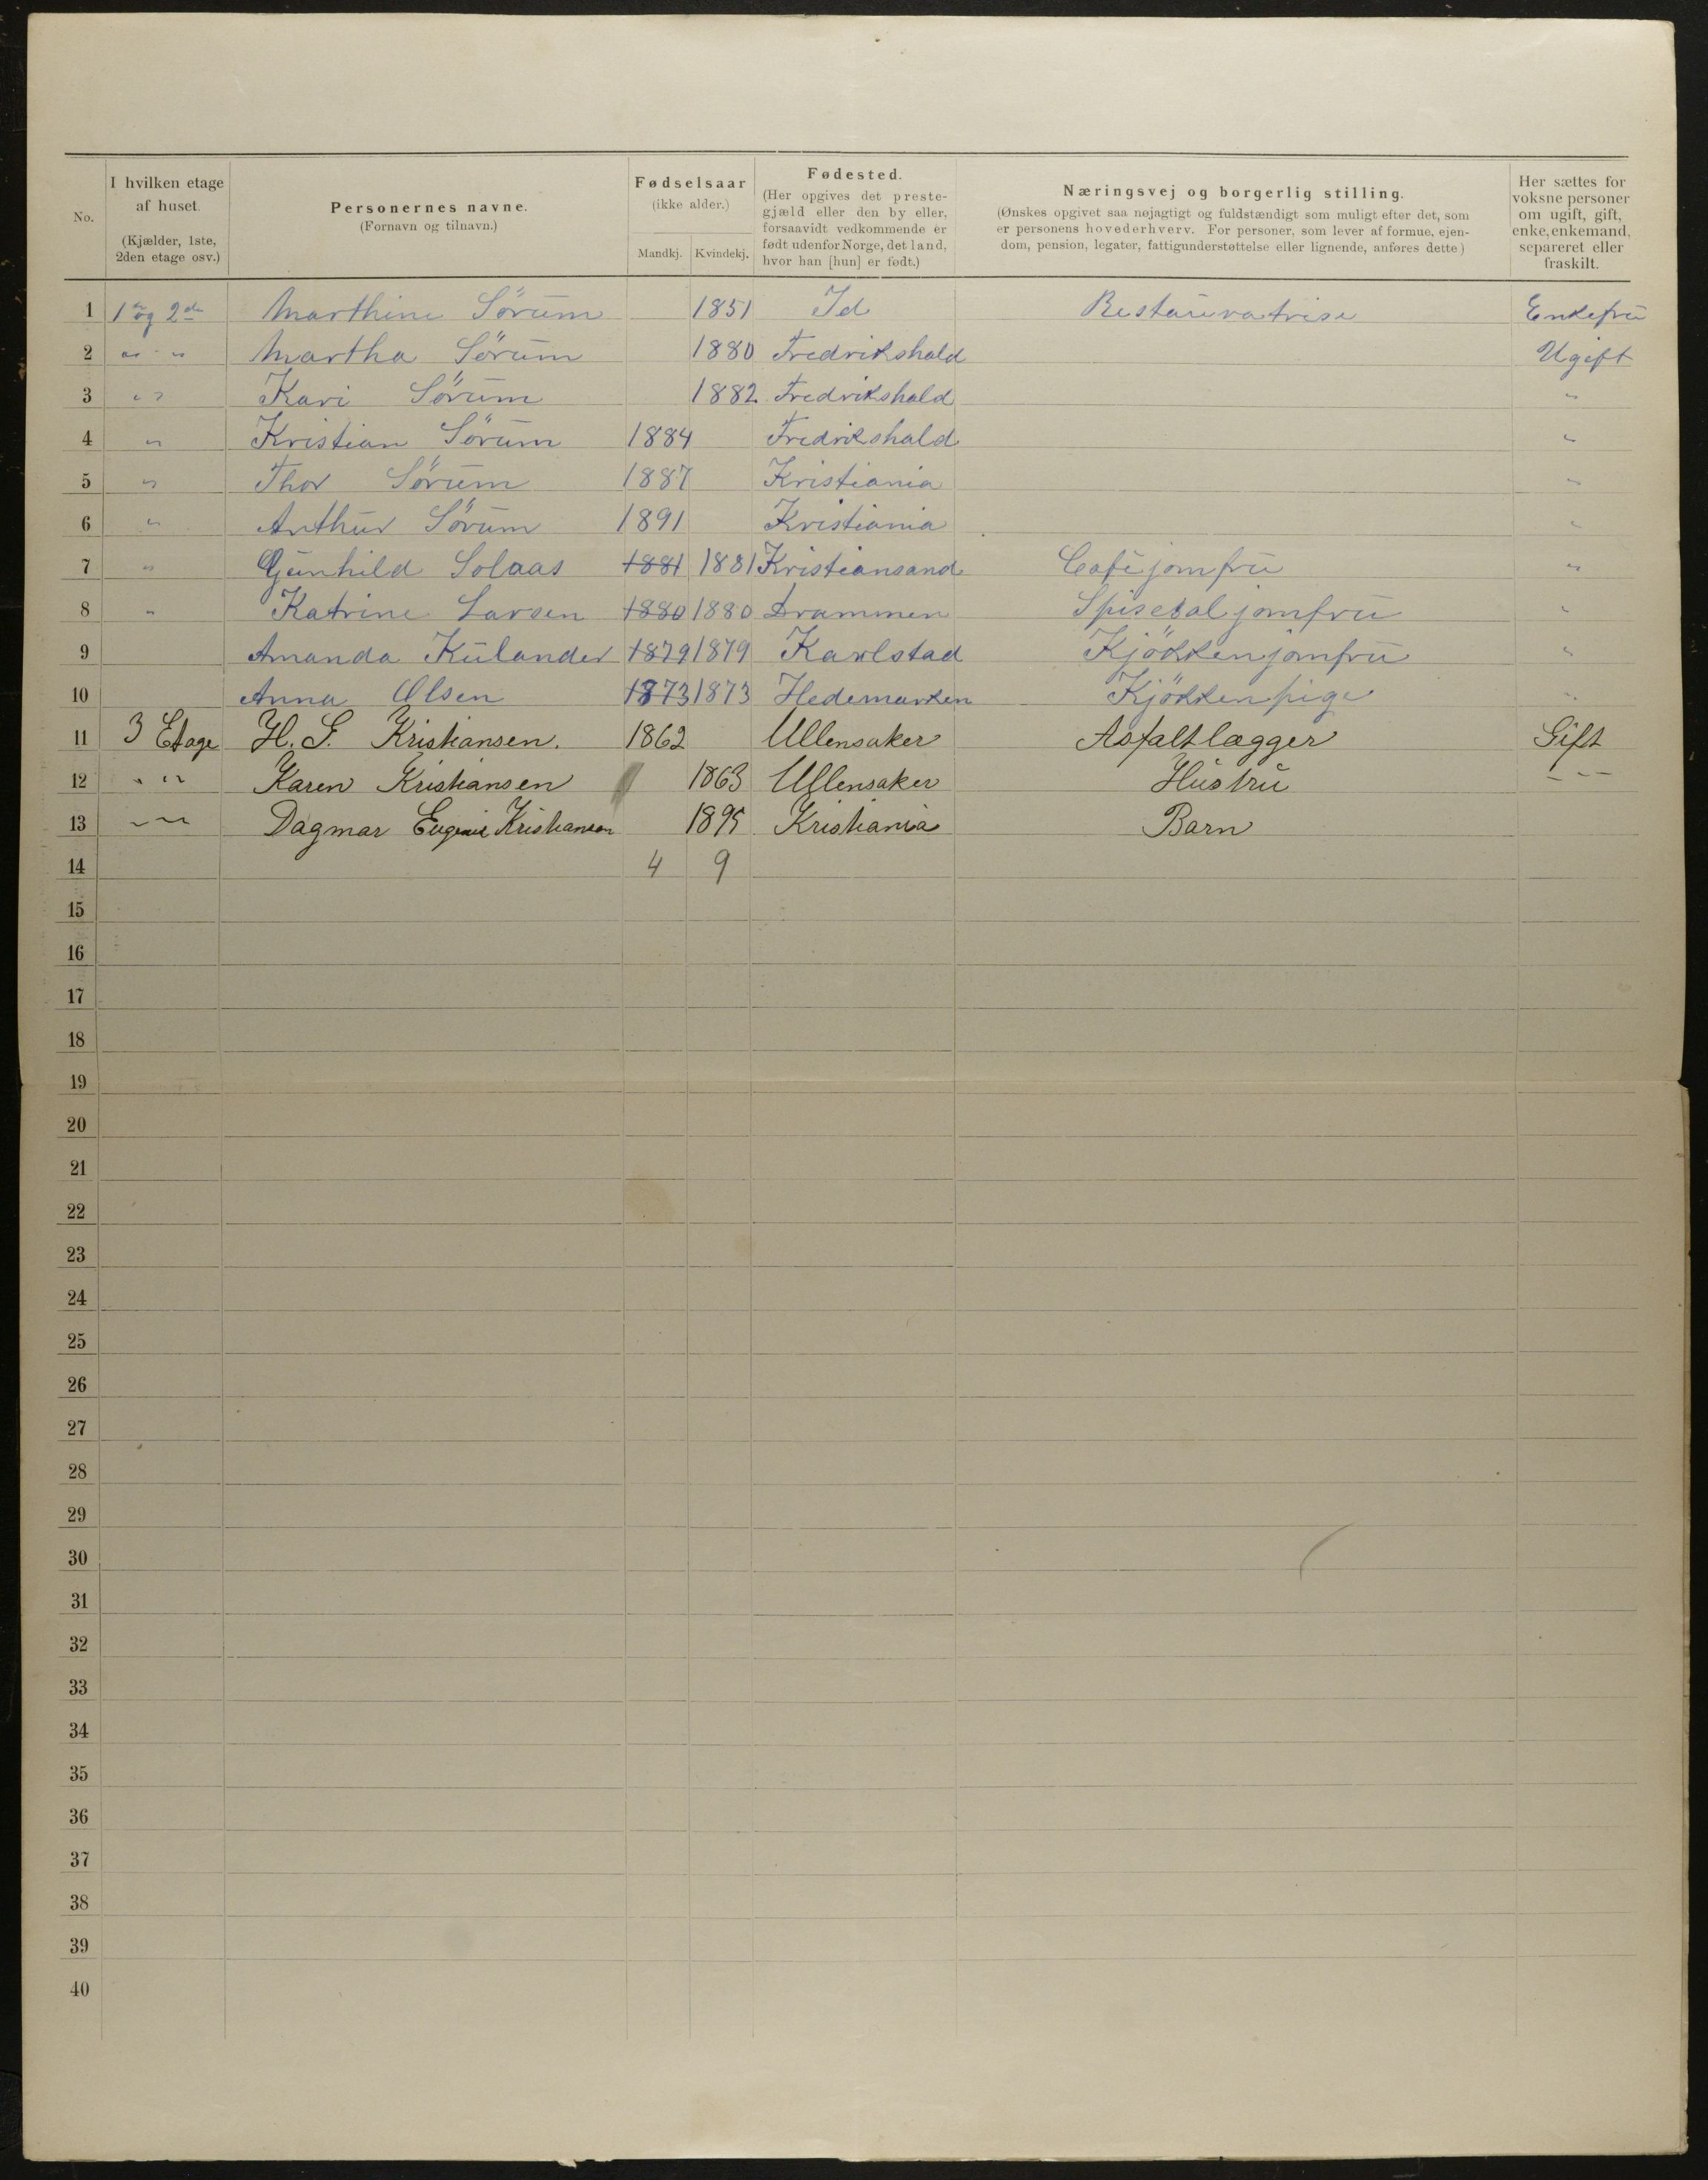 No. | I hvilken etage af huset. (Kjælder, 1ste, 2den etage osv.) | Personernes navne. (Fornavn og tilnavn.) | Fødselsaar (ikke alder.) Mandkj. | Kvindekj. | Fødested. (Her opgives det prestegjæld eller den by eller, forsaavidt vedkommende er født udenfor Norge, det land, hvor han [hun] er født.) | Næringsvej og borgerlig stilling. (Ønskes opgivet saa nøjagtigt og fuldstændigt som muligt efter det, som er personens hovederhverv. For personer, som lever af formue, ejendom, pension, legater, fattigunderstøttelse eller lignende, anføres dette) | Her sættes for voksne personer om ugift, gift, enke, enkemand, separeret eller fraskilt.
1 | 1ste og 2den | Marthine Sörum | | 1851 | Id | Restauratrise | Enkefru
2 | " " | Martha Sörum | | 1880 | Fredrikshald | | Ugift
3 | " | Kari Sörum | | 1882 | Fredrikshald | | "
4 | " | Kristian Sörum | 1884 | | Fredrikshald | | "
5 | " | Thor Sörum | 1887 | | Kristiania | | "
6 | " | Arthur Sörum | 1891 | | Kristiania | | "
7 | " | Gunhild Solaas | 1881 | 1881 | Kristiansand | Cafejomfru | "
8 | " | Katrine Larsen | 1880 | 1880 | Drammen | Spisesaljomfru | "
9 | | Amanda Kulander | 1879 | 1879 | Karlstad | Kjökkenjomfru | "
10 | | Anna Olsen | 1873 | 1873 | Hedemarken | Kjökkenpige | "
11 | 3 Etage | H. S. Kristiansen. | 1862 | | Ullensaker | Asfaltlægger | Gift
12 | " " | Karen Kristiansen | | 1863 | Ullensaker | Hustru | " "
13 | " " | Dagmar Eugenie Kristiansen | | 1895 | Kristiania | Barn
14 | | | 4 | 9
15
16
17
18
19
20
21
22
23
24
25
26
27
28
29
30
31
32
33
34
35
36
37
38
39
40